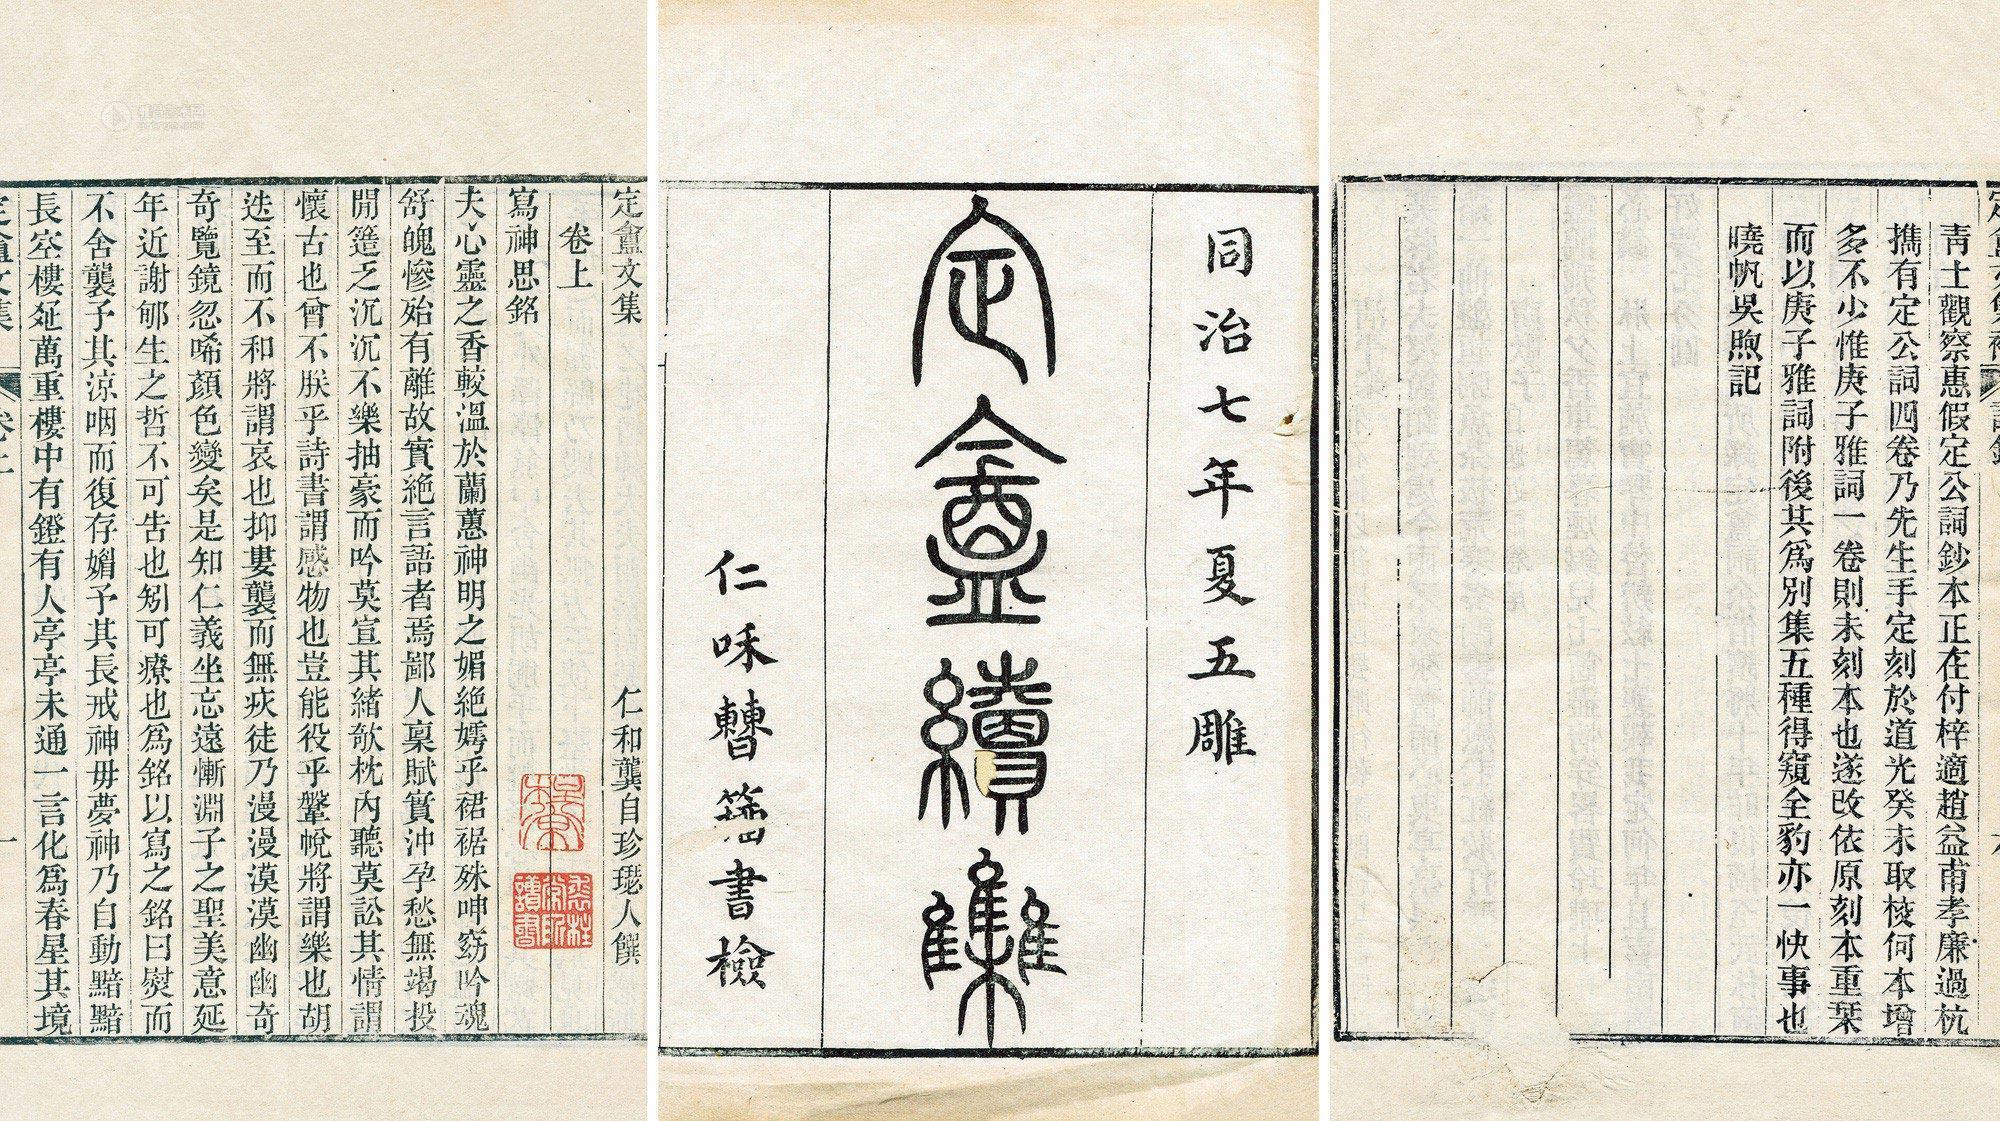 定盦文集
卷上
仁和龔自珍璱人饌
寫神思銘
夫心靈之香較溫於蘭蕙神明之媚絶嫮乎裙裾殊呻窈吟魂
舒魄慘殆有離故實絶言語者焉鄙人稟賦實沖孕愁無竭投
閒簉乏沉沉不樂抽豪而吟莫宣其緒欹枕內聽莫訟其情謂
懷古也曾不朕乎詩書謂感物也豈能役乎鞶帨將謂樂也胡
迭至而不和將謂哀也抑屢襲而無疢徒乃漫漫漠漠幽幽奇
奇覽鏡忽唏顏色變矣是知仁義坐忘遠慚淵子之聖美意延
年近謝郇生之哲不可告也矧可療也爲銘以寫之銘曰熨而
不舍襲予其涼咽而復存媚予其長戒神毋夢神乃自動黯黯
長空樓疑萬重樓中有鐙有人亭亭未通一言化爲春星其境
定盦文集
卷上
一
同治七年夏五雕
定盦續集
仁咊曹籀書檢
定盦文集補
青士觀察惠假定公詞鈔本正在付梓適趙益甫孝廉過杭
攜有定公詞四卷乃先生手定刻於道光癸未取校何本增
多不少惟庚子雅詞一卷則未刻本也遂改依原刻本重棨
而以庚子雅詞附後其爲別集五種得窺全豹亦一快事也
曉帆吳煦記